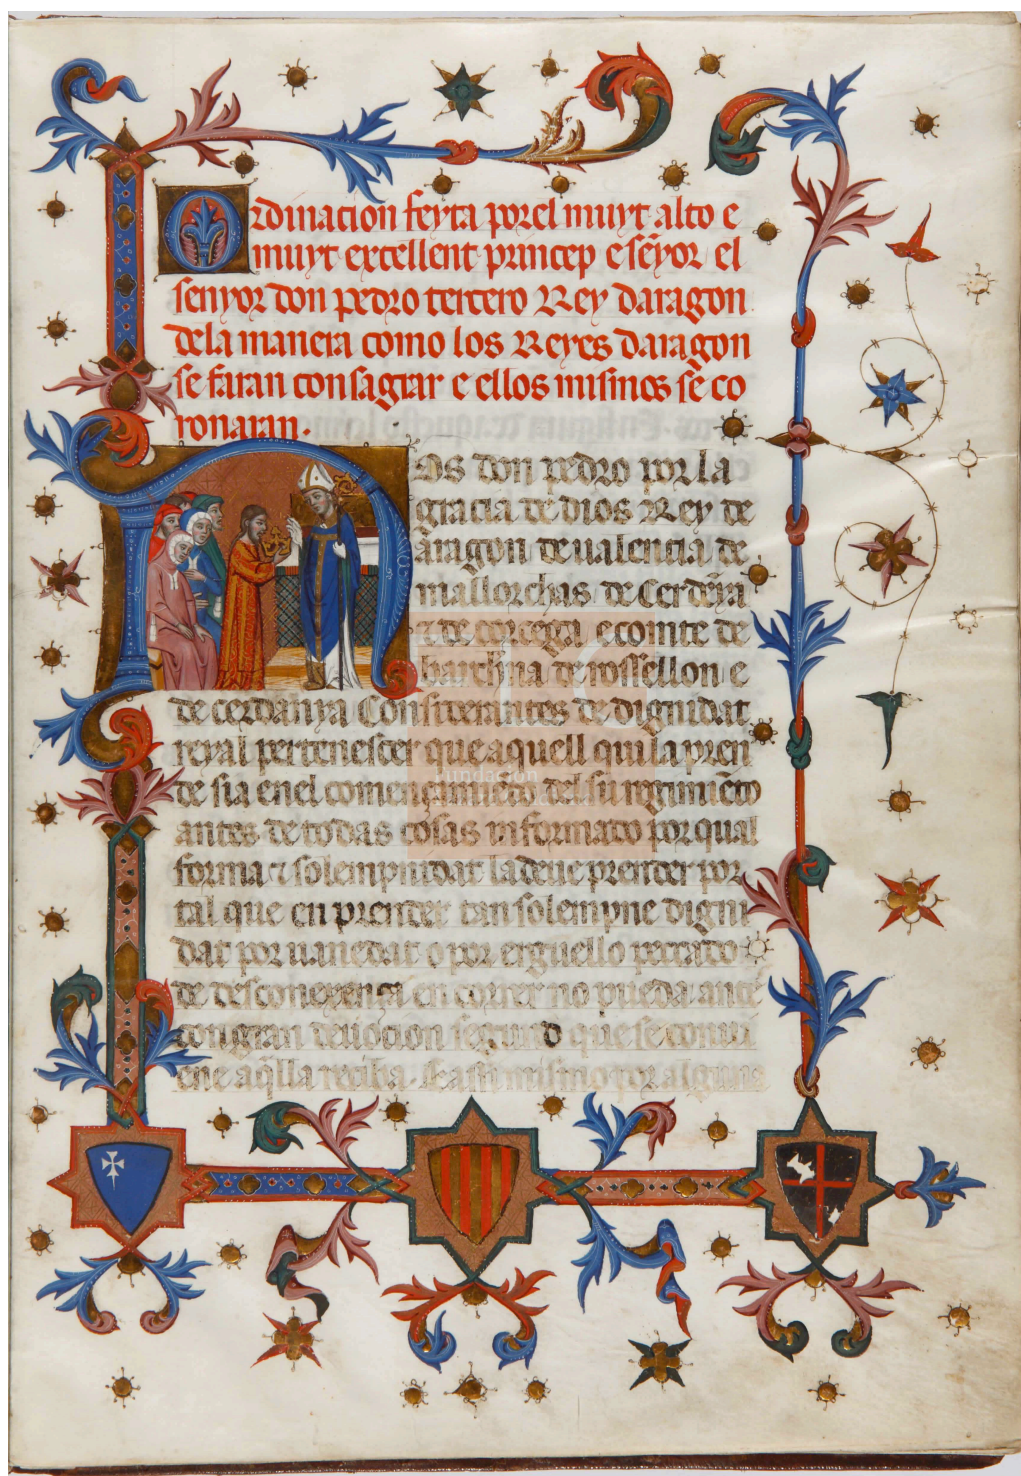 Ordinacion feyta por el muyt alto e
muyt excellent princep e sen̄yor el
senyor don pedro tercero Rey daragon
de la manera como los Reyes daragon
se faran consagrar e ellos mismos se co
ronaran.
Nos don pedro por la
gracia de dios Rey de
aragon de ualencia de
mallorchas de Cerden̄ya
⁊ de corcega e comte de
barch̄na de rossellon e
de cerdanya Considerantes de dignidat
reyal pertenescer que aquell qui la pren
de sia en el començamiēto del su regimiēto
antes de todas cosas informado por qual
forma ⁊ solempnidat la deue prender por
tal que en prender tan solempne digni
dat por uanedat o por erguello peccado
de desconexença en correr no pueda ante
con gran deuocion segund que se conui
ene aq̄lla reciba. E assi mismo por algunas
Fundación